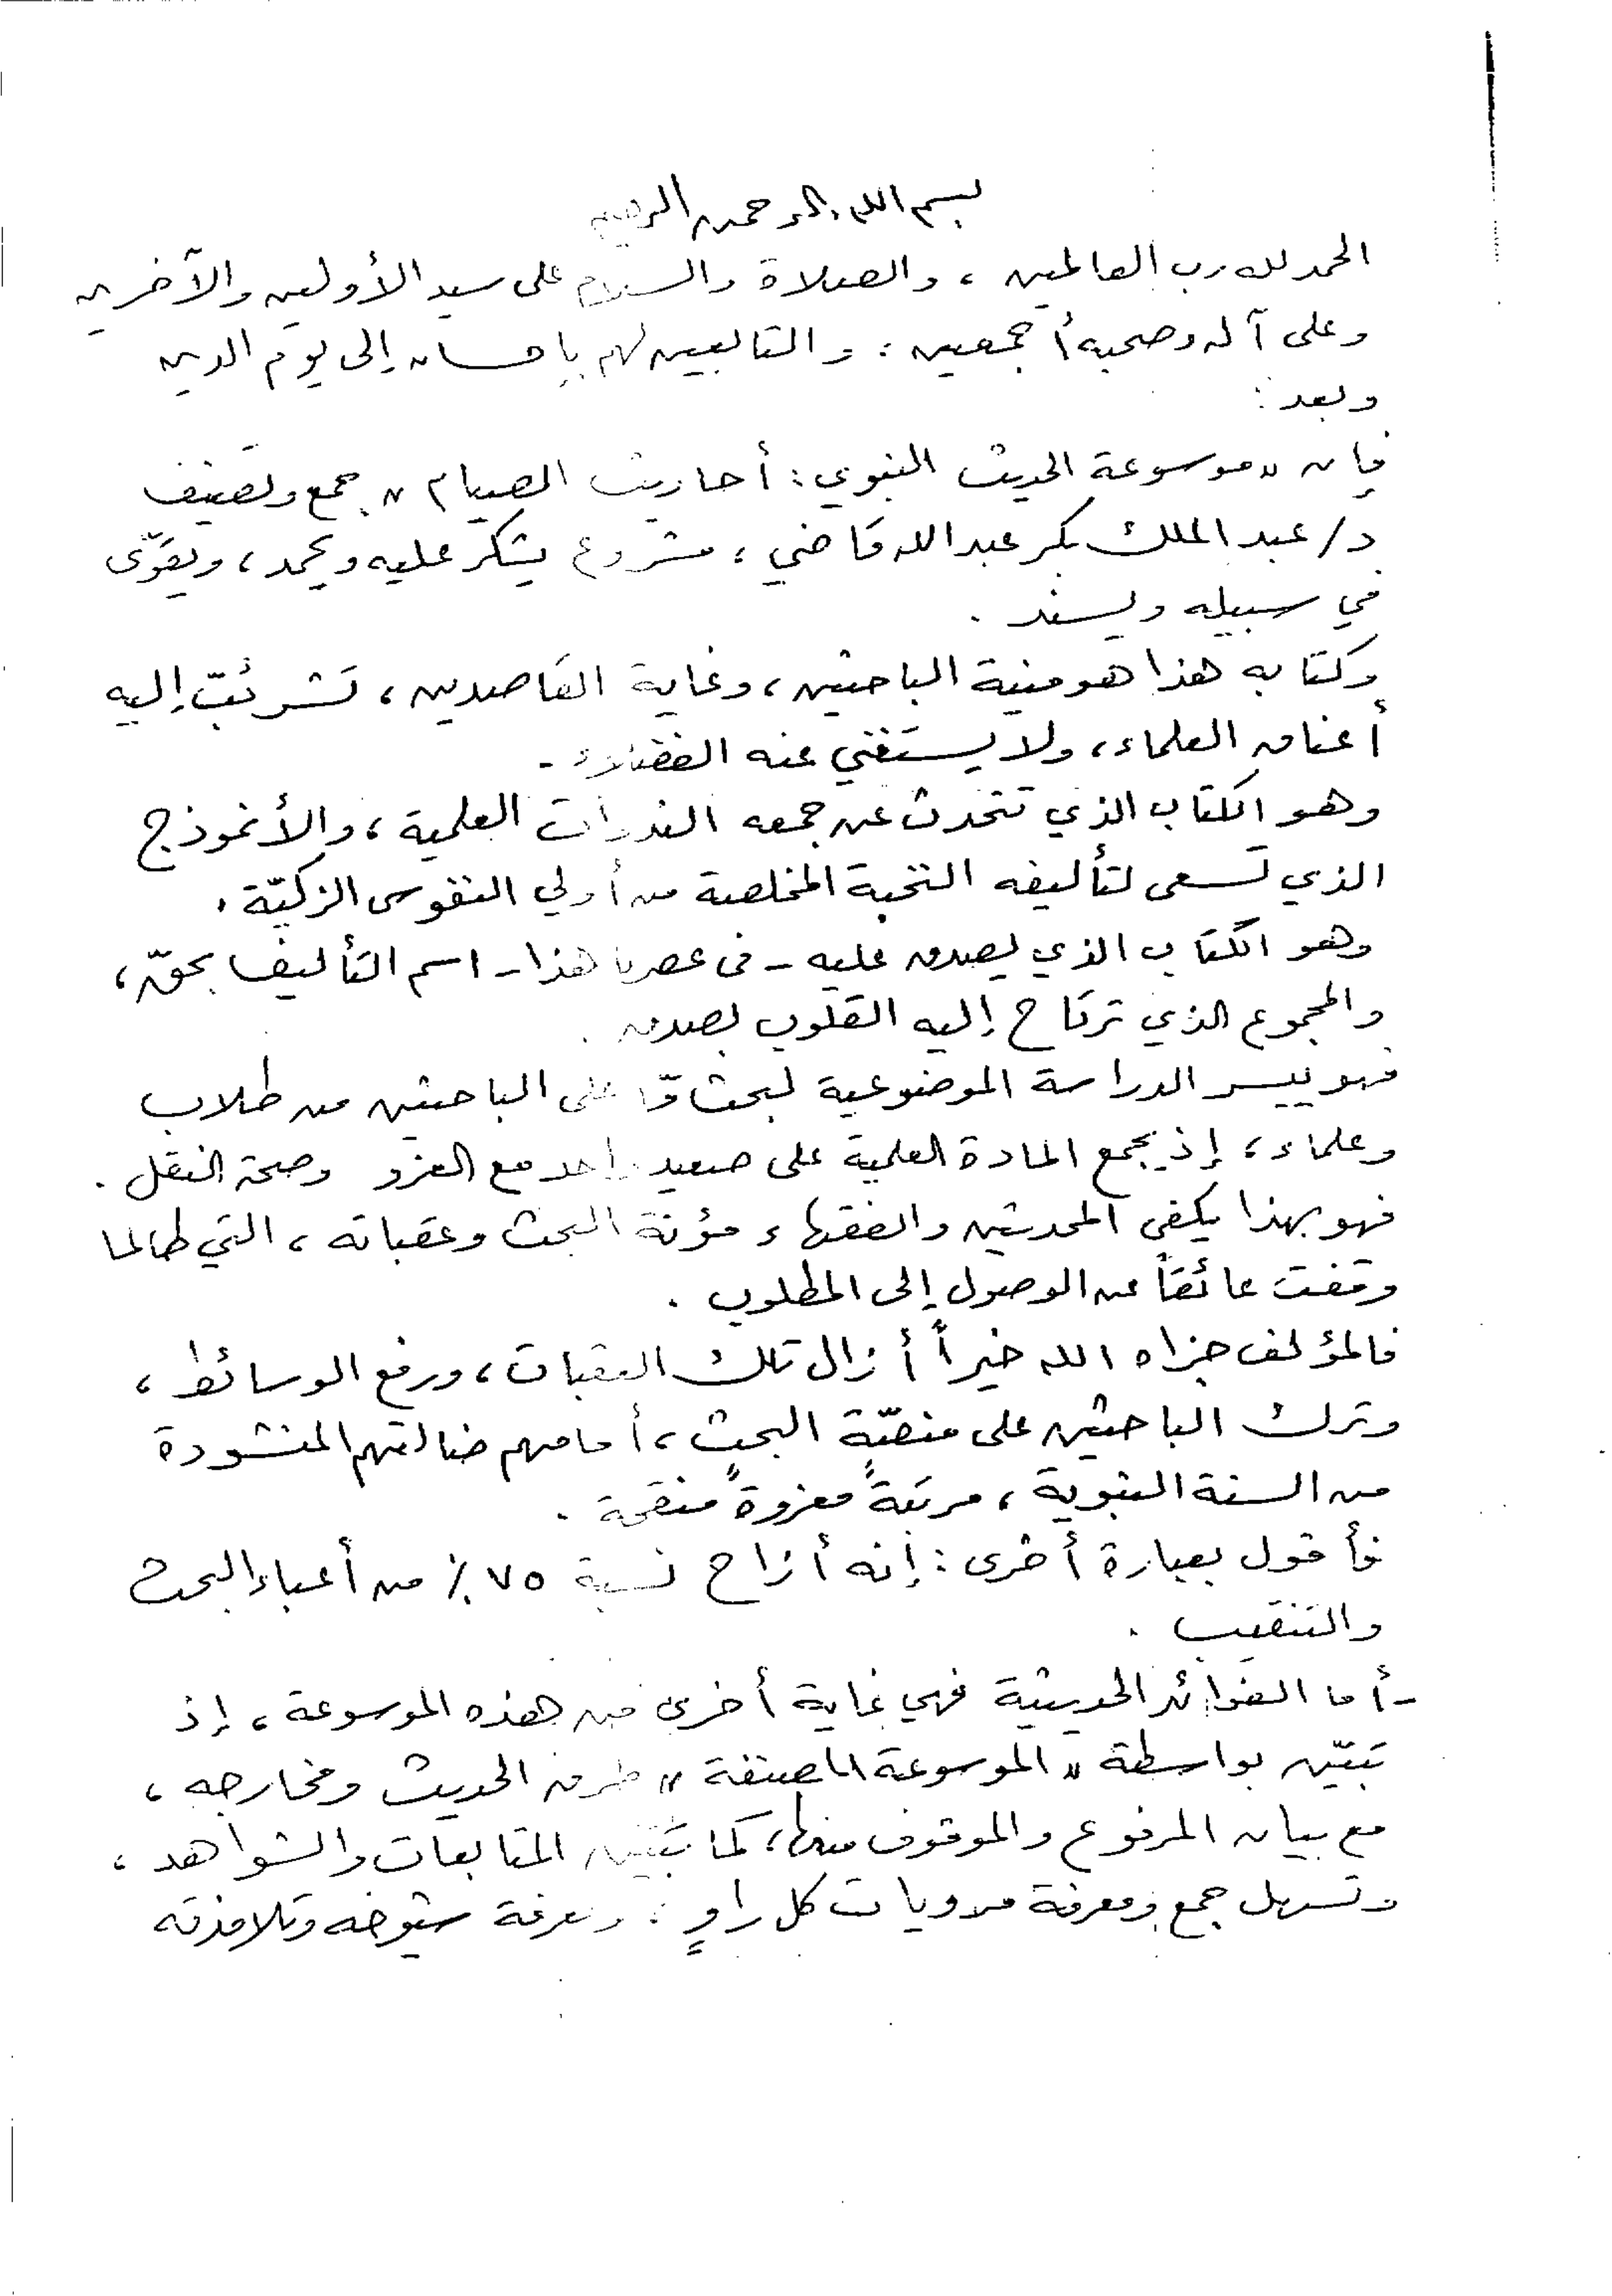 بسم الله الرحمن الرحيم
الحمد لله رب العالمين ، والصلاة والسلام على سيد الأولين والآخرين
وعلى آله وصحبه أجمعين ، والتابعين لهم بإحسان إلى يوم الدين
وبعد :
فإن « موسوعة الحديث النبوي : أحاديث الصيام » جمع وتصنيف
د/ عبد الملك بكر عبد الله قاضي ، مشروع يشكر عليه ويحمد ، ويقوّى
في سبيله ويسند .
وكتابه هذا هو منية الباحثين ، وغاية القاصدين ، تشرئبّ إليه
أعناق العلماء ، ولا يستغني عنه الفضلاء .
وهو الكتاب الذي تتحدث عن جمعه الندوات العلمية ، والأنموذج
الذي تسعى لتأليفه النخبة المخلصة من أولي النفوس الزكيّة .
وهو الكتاب الذي يصدق عليه - في عصرنا هذا - اسم التأليف بحقّ ،
والمجموع الذي ترتاح إليه القلوب بصدق .
فهو ييسر الدراسة الموضوعية لبحث مّا على الباحثين من طلاب
وعلماء ، إذ يجمع المادة العلمية على صعيد واحد مع العزو وصحة النقل .
فهو بهذا يكفي المحدثين والفقهاء مؤنة البحث وعقباته ، التي طالما
وقفت عائقاً عن الوصول إلى المطلوب .
فالمؤلف جزاه الله خيراً أزال تلك العقبات ، ورفع الوسائط ،
وترك الباحثين على منصّة البحث ، أمامهم ضالتهم المنشودة
من السنة النبوية ، مرتبةً معزوةً منقحة .
فأقول بعبارة أخرى : إنه أزاح نسبة ٧٥ ٪ من أعباء البحث
والتنقيب .
- أما الفوائد الحديثية فهي غاية أخرى من هذه الموسوعة ، إذ
تبيّن بواسطة « الموسوعة المصنفة » طرق الحديث ومخارجه ،
مع بيان المرفوع والموقوف منها ، كما تبيّن المتابعات والشواهد ،
وتسهل جمع ومعرفة مرويات كل راوٍ ، ومعرفة شيوخه وتلامذته